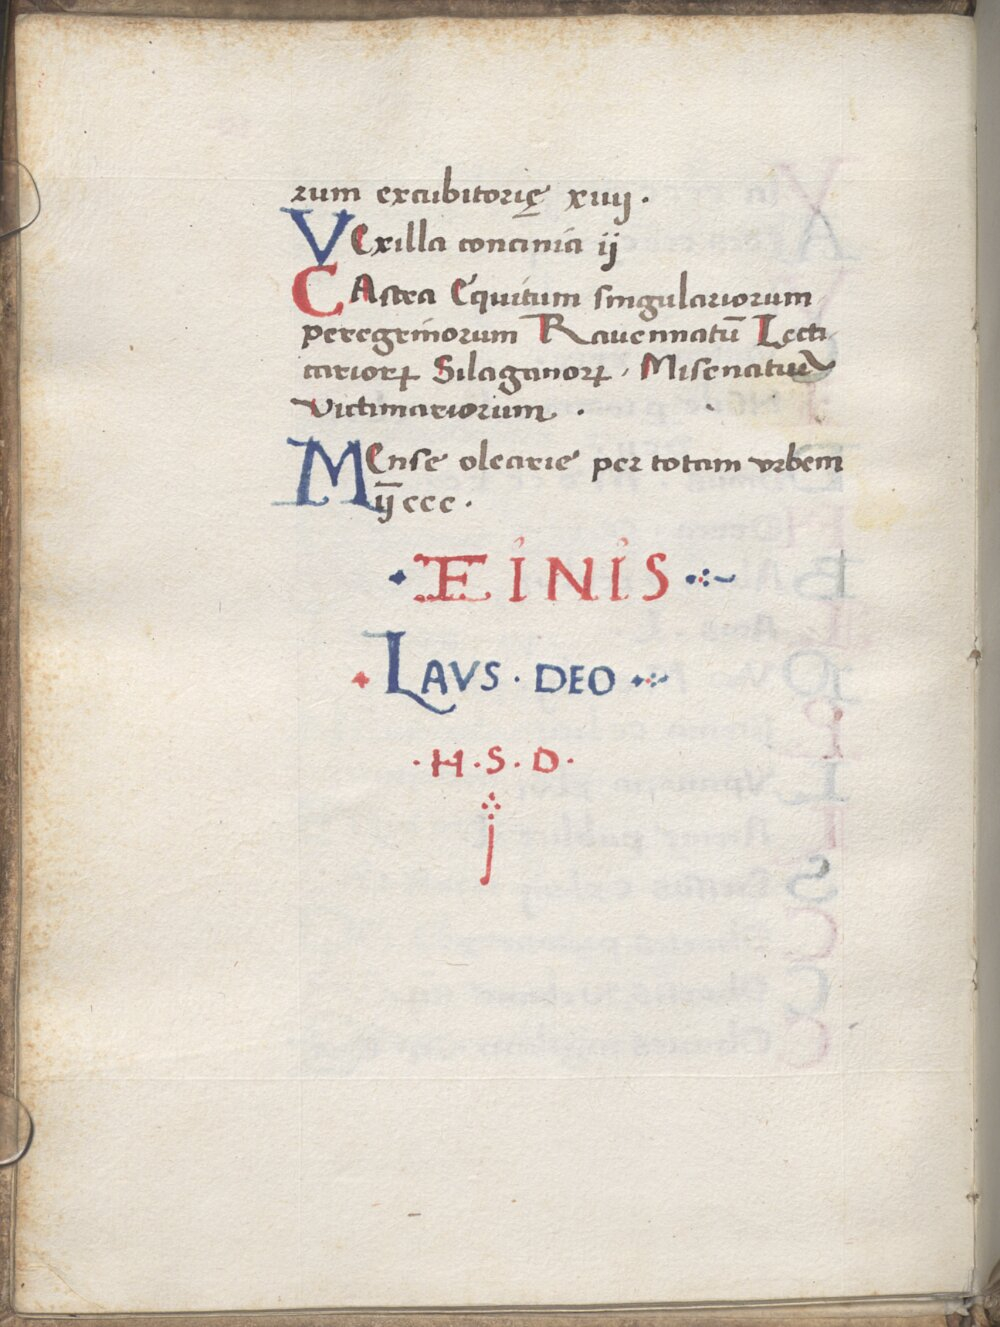 rum excubitorię xiiij .
VExilla concinia ij
CAstra Equitum singulariorum
peregrinorum Rauennatū Lecti
cariorꝝ Silaganorꝝ , Misenatium
victimariorum .
MEnse olearie per totam vrbem
ij̄ ccc .
FINIS
LAVS · DEO
· H · S · D ·
j